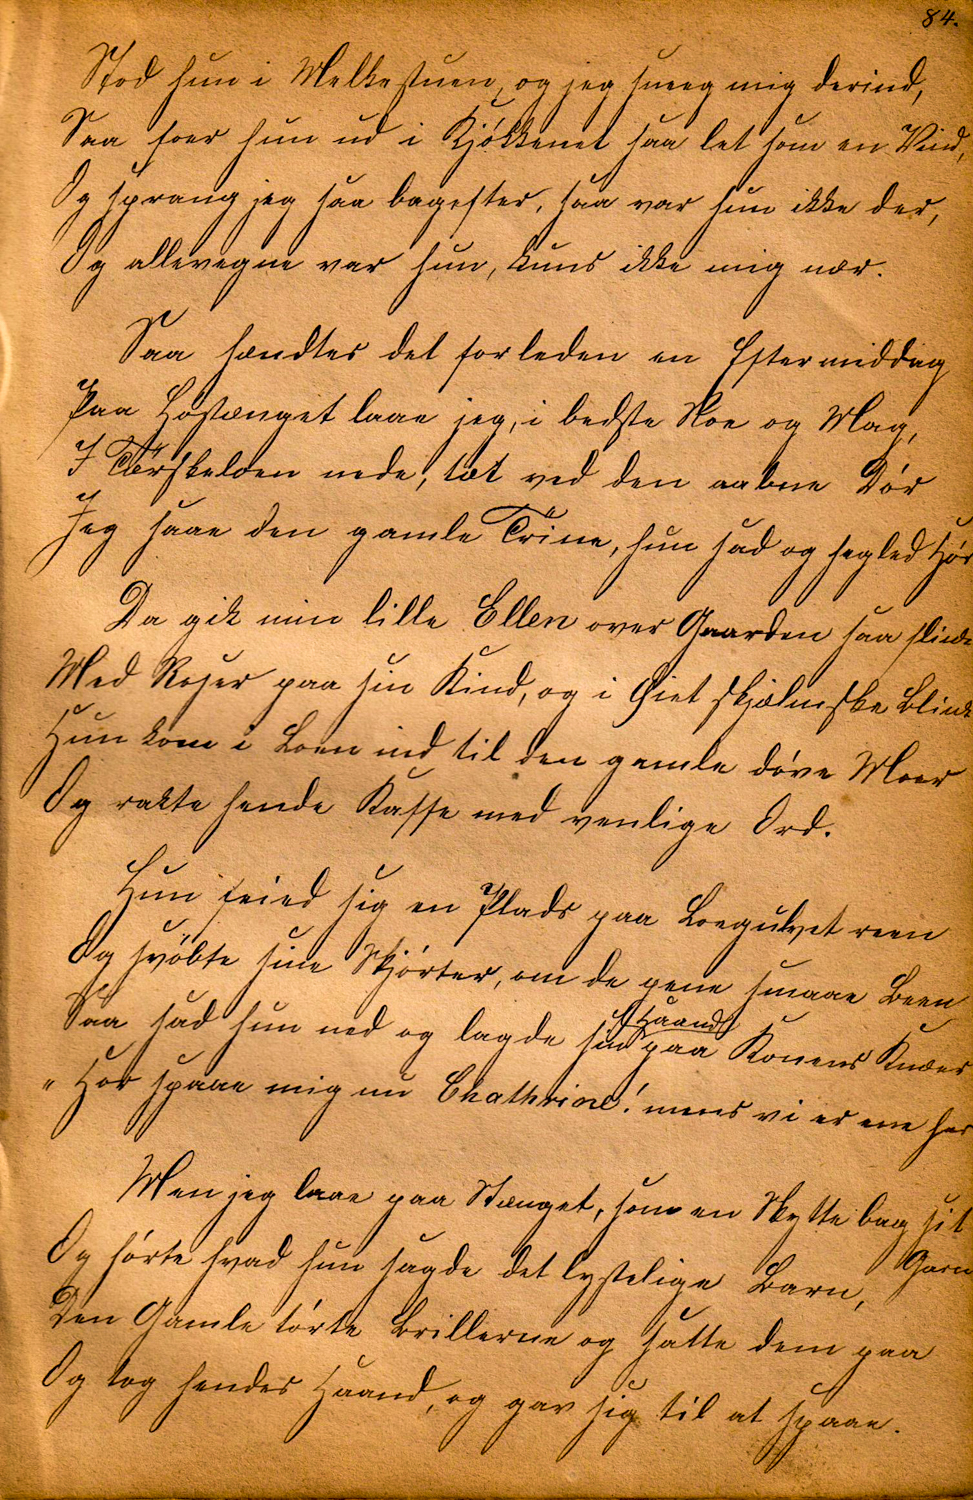 84.
Stod hun i Melkestuen, og jeg sneeg mig derind,
Saa foer hun ud i Kjøkkenet saa let som en Vind,
Og sprang jeg saa bagefter, saa var hun ikke der,
Og allevegne var hun, kuns ikke mig nær.
Saa hændtes det forleden en Eftermiddag
Paa Høstænget laae jeg, i bedste Roe og Mag,
I Tærskeloen nede, tæt ved den aabne Dör
Jeg saae den gamle Trine, hun sad og hegled Hör
Da gik min lille Ellen over Gaarden saa flink
Med Roser paa sin Kind, og i Øiet skjælmske Blink
Hun kom i Loen ind til den gamle döve Moer
Og rakte hende Kaffe med venlige Ord.
Hun feied sig en Plads paa Loegulvet reen
Og svöbte sine Skjörter, om de pene smaae Been
Saa sad hun ned og lagde sin Haand paa Konens Knæer
"Hör spaae mig nu Chathrine! mens vi er ene her
Men jeg laae paa Stænget, som en Skytte bag sit
Garn
Og hörte hvad hun sagde det lystelige Barn,
Den Gamle törte Brillerne og satte dem paa
Og tog hendes Haand, og gav sig til at spaae.